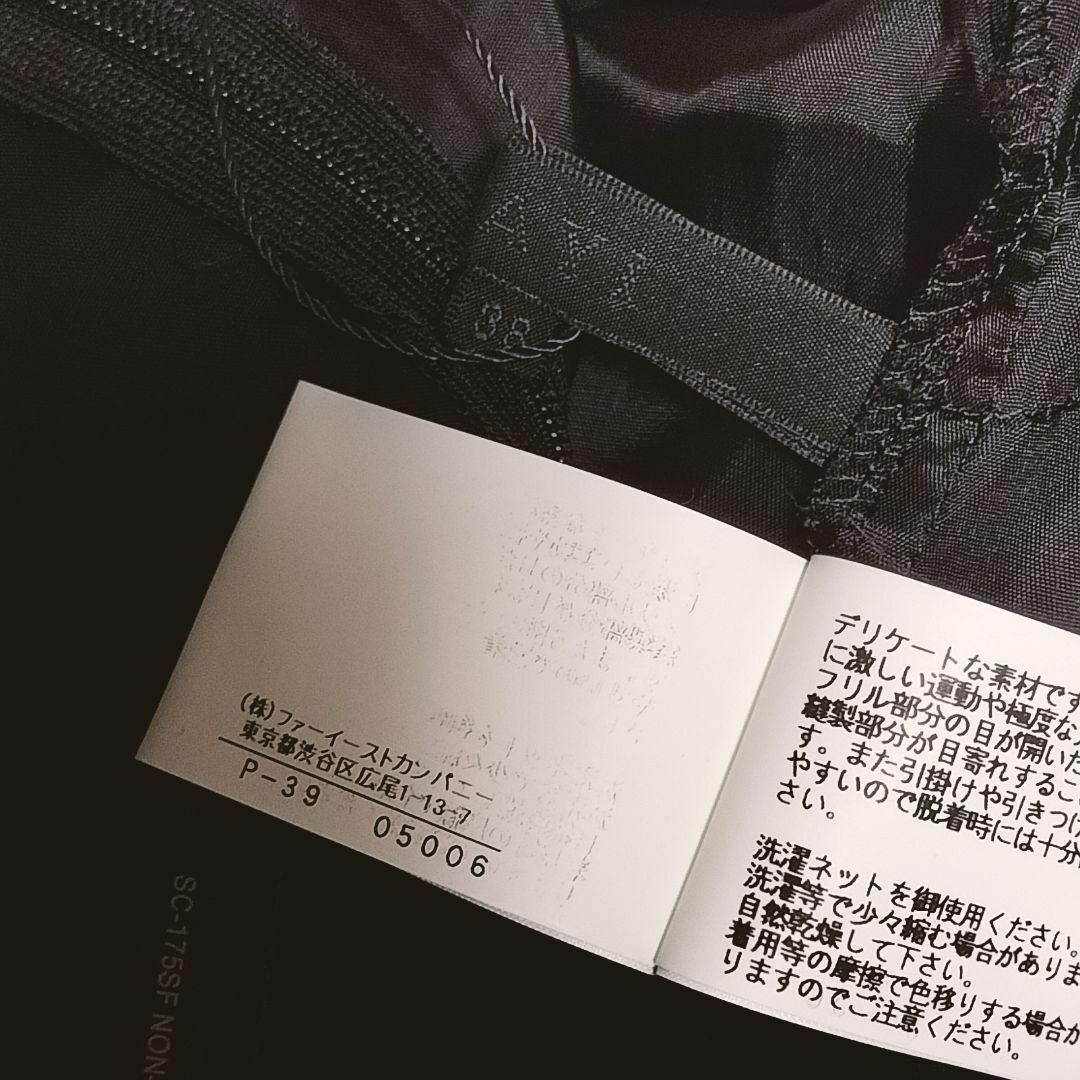 38
(株)ファーイーストカンパニー
東京都渋谷区広尾1-13-7
P-39
05006
デリケートな素材です
に激しい運動や極度な
フリル部分の目が開いた
縫製部分が目寄れするこ
す。また引掛けや引きつけ
やすいので脱着時には十分
さい。
洗濯ネットを御使用ください。
洗濯等で少々縮む場合がありま
自然乾燥して下さい。
着用等の摩擦で色移りする場合が
りますのでご注意ください。
SC-175SF NON-